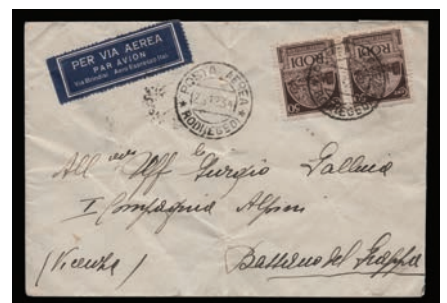 PER VIA AEREA
PAR AVION
Via Brindisi Aero Espresso Ital.
POSTA AEREA
RODI (EGEO)
RODI
RODI
50
All'
Uff Giorgio Gallina
I Compagnia Alpini
(Vicenza)
Bassano del Grappa